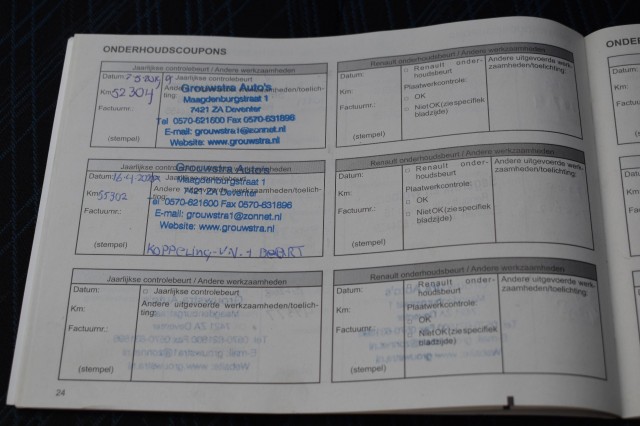 ONDERHOUDSCOUPONS
ONDER
Jaarlijkse controlebeurt / Andere werkzaamheden
Datum:
Jaarlijkse controlebeurt
Km: 52304
Factuurnr.:
(stempel)
Grouwstra Auto's
Maagdenburgstraat 1
7421 ZA Deventer
Tel 0570-621600 Fax 0570-631696
E-mail: grouwstra1@zonnet.nl
Website: www.grouwstra.nl
Renault onderhoudsbeurt / Andere werkzaamheden
Datum:
Km:
Factuurnr.:
(stempel)
□ Renault onder-
houdsbeurt
Plaatwerkcontrole:
□ OK
□ Niet OK (zie specifiek
bladzijde)
Andere uitgevoerde werk-
zaamheden/toelichting:
Jaarlijkse controlebeurt
Datum: 16-4
Km: 55302
Factuurnr.:
(stempel)
Andere uitgevoerde werkzaamheden/toelich-
ting:
Grouwstra Auto's
Maagdenburgstraat 1
7421 ZA Deventer
Tel 0570-621600 Fax 0570-631696
E-mail: grouwstra1@zonnet.nl
Website: www.grouwstra.nl
KOPPELING-V.V. + BEURT
Renault onderhoudsbeurt / Andere werkzaamheden
Datum:
Km:
Factuurnr.:
(stempel)
□ Renault onder-
houdsbeurt
Plaatwerkcontrole:
□ OK
□ Niet OK (zie specifiek
bladzijde)
Andere uitgevoerde werk-
zaamheden/toelichting:
Jaarlijkse controlebeurt / Andere werkzaamheden
Datum:
Km:
Factuurnr.:
(stempel)
□ Jaarlijkse controlebeurt
Andere uitgevoerde werkzaamheden/toelich-
ting:
Renault onderhoudsbeurt / Andere werkzaamheden
Datum:
Km:
Factuurnr.:
(stempel)
□ Renault onder-
houdsbeurt
Plaatwerkcontrole:
□ OK
□ Niet OK (zie specifiek
bladzijde)
Andere uitgevoerde werk-
zaamheden/toelichting:
24